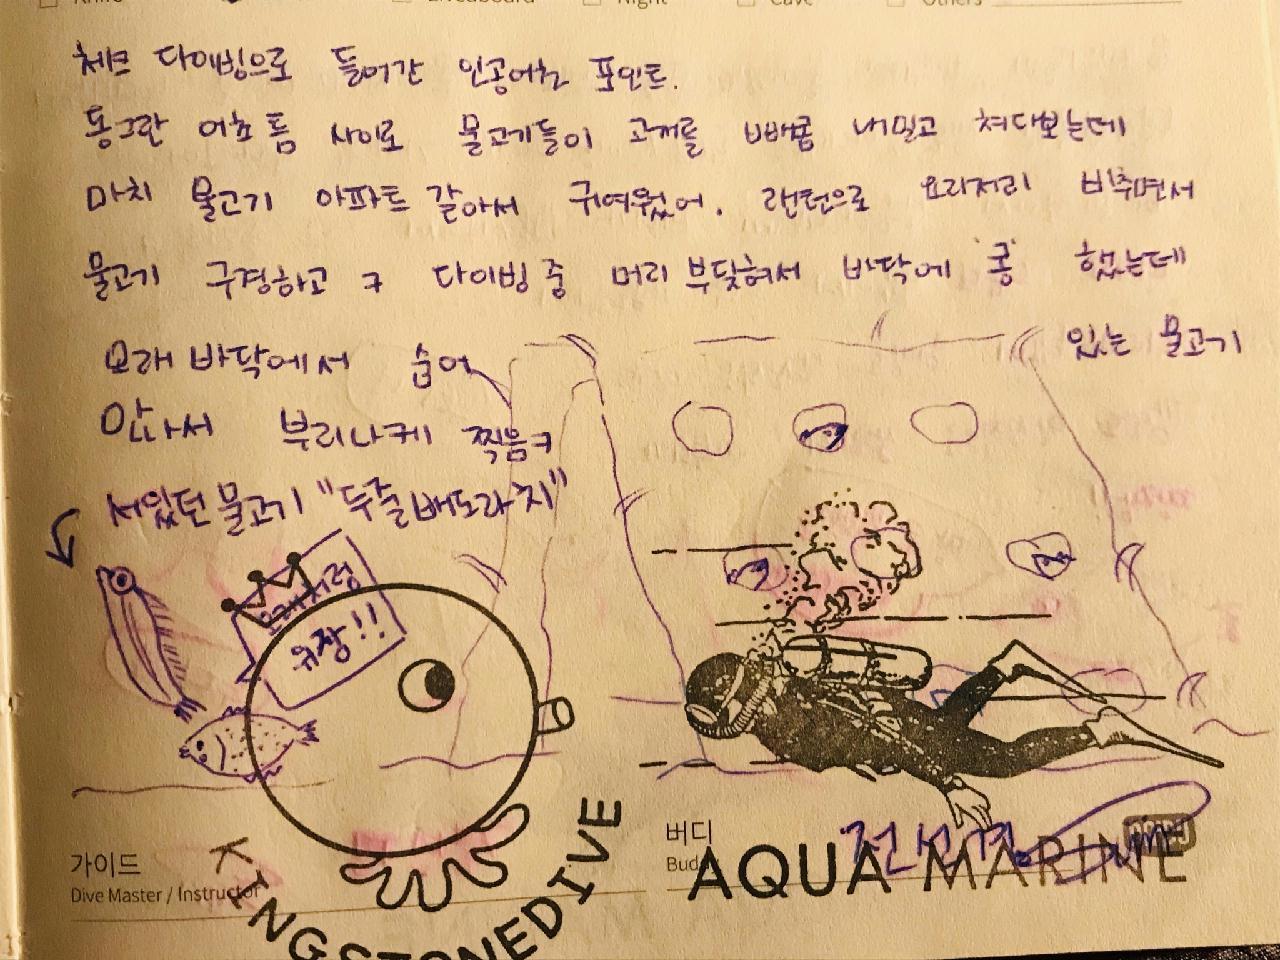 Knife Liveaboard Night Cave Others
체크 다이빙으로 들어간 인공어초 포인트.
동그란 어초 틈 사이로 물고기들이 고개를 빼꼼 내밀고 쳐다보는데
마치 물고기 아파트 같아서 귀여웠어. 랜턴으로 요리저리 비추면서
물고기 구경하고 ㅋ 다이빙 중 머리 부딪혀서 바닥에 '콩' 했는데
모래 바닥에서 숨어 있는 물고기
앉아서 부리나케 찍음ㅋ
서있던 물고기 "두줄베도라치"
위장!!
가이드
Dive Master / Instructor
KINGSTONEDIVE
버디
Bud
AQUA MARINE